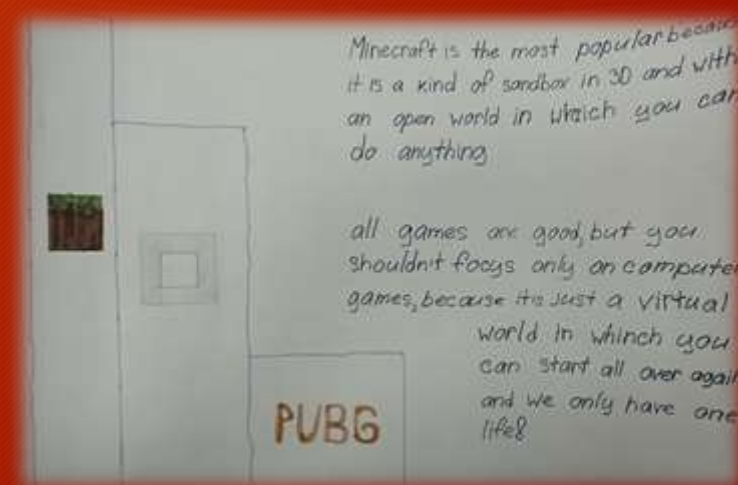 Minecraft is the most popular because
it is a kind of sandbox in 3D and with
an open world in which you can
do anything
all games are good, but you
shouldn't focys only on computer
games, because it is just a virtual
world in whinch you
can start all over again
and we only have one
life!
PUBG